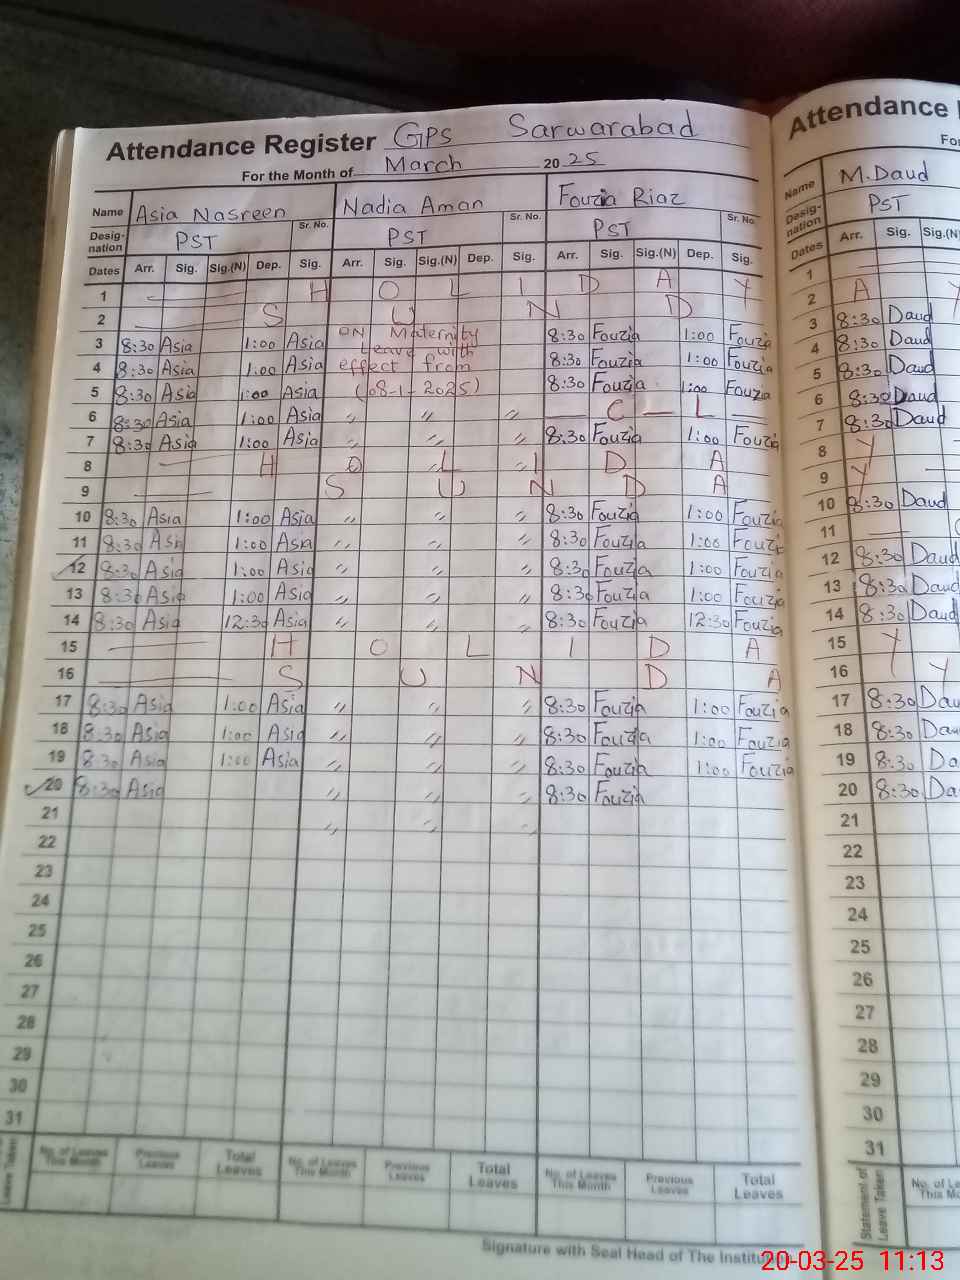 Attendance Register GPS Sarwarabad
For the Month of March 2025
Name Asia Nasreen Nadia Aman Fouzia Riaz
Desig-nation PST Sr. No. PST Sr. No. PST Sr. No.
Dates Arr. Sig. Sig.(N) Dep. Sig. Arr. Sig. Sig.(N) Dep. Sig. Arr. Sig. Sig.(N) Dep. Sig.
1 H O L I D A Y
2 S U N D
3 8:30 Asia 1:00 Asia ON Maternity 8:30 Fouzia 1:00 Fouzia
4 8:30 Asia 1:00 Asia Leave with effect from 8:30 Fouzia 1:00 Fouzia
5 8:30 Asia 1:00 Asia (08-1-2025) 8:30 Fouzia 1:00 Fouzia
6 8:30 Asia 1:00 Asia 〃 〃 〃 — C — L —
7 8:30 Asia 1:00 Asia 〃 〃 〃 8:30 Fouzia 1:00 Fouzia
8 H O L I D A
9 S U N D A
10 8:30 Asia 1:00 Asia 〃 〃 〃 8:30 Fouzia 1:00 Fouzia
11 8:30 Asia 1:00 Asia 〃 〃 〃 8:30 Fouzia 1:00 Fouzia
12 8:30 Asia 1:00 Asia 〃 〃 〃 8:30 Fouzia 1:00 Fouzia
13 8:30 Asia 1:00 Asia 〃 〃 〃 8:30 Fouzia 1:00 Fouzia
14 8:30 Asia 12:30 Asia 〃 〃 〃 8:30 Fouzia 12:30 Fouzia
15 H O L I D A
16 S U N D A
17 8:30 Asia 1:00 Asia 〃 〃 〃 8:30 Fouzia 1:00 Fouzia
18 8:30 Asia 1:00 Asia 〃 〃 〃 8:30 Fouzia 1:00 Fouzia
19 8:30 Asia 1:00 Asia 〃 〃 〃 8:30 Fouzia 1:00 Fouzia
20 8:30 Asia 〃 〃 〃 8:30 Fouzia
21 〃 〃 〃
22
23
24
25
26
27
28
29
30
31
Leave Taken No. of Leaves This Month Previous Leaves Total Leaves No. of Leaves This Month Previous Leaves Total Leaves No. of Leaves This Month Previous Leaves Total Leaves
Signature with Seal Head of The Institution
Attendance
Name M.Daud
Desig-nation PST
Dates Arr. Sig. Sig.(N)
1
2 A Y
3 8:30 Daud
4 8:30 Daud
5 Daud
6 8:30 Daud
7 8:30 Daud
8 Y
9 Y
10 8:30 Daud
11
12 8:30 Daud
13 8:30 Daud
14 8:30 Daud
15 Y
16 Y Y
17 8:30 Dau
18 8:30 Dau
19 8:30 Da
20 8:30 Da
21
22
23
24
25
26
27
28
29
30
31
Statement of Leave Taken No. of Le This Mo
20-03-25 11:13